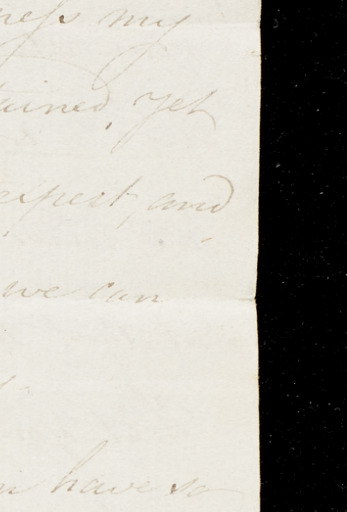 ness my
tained, yet
expect, and
we can
have so